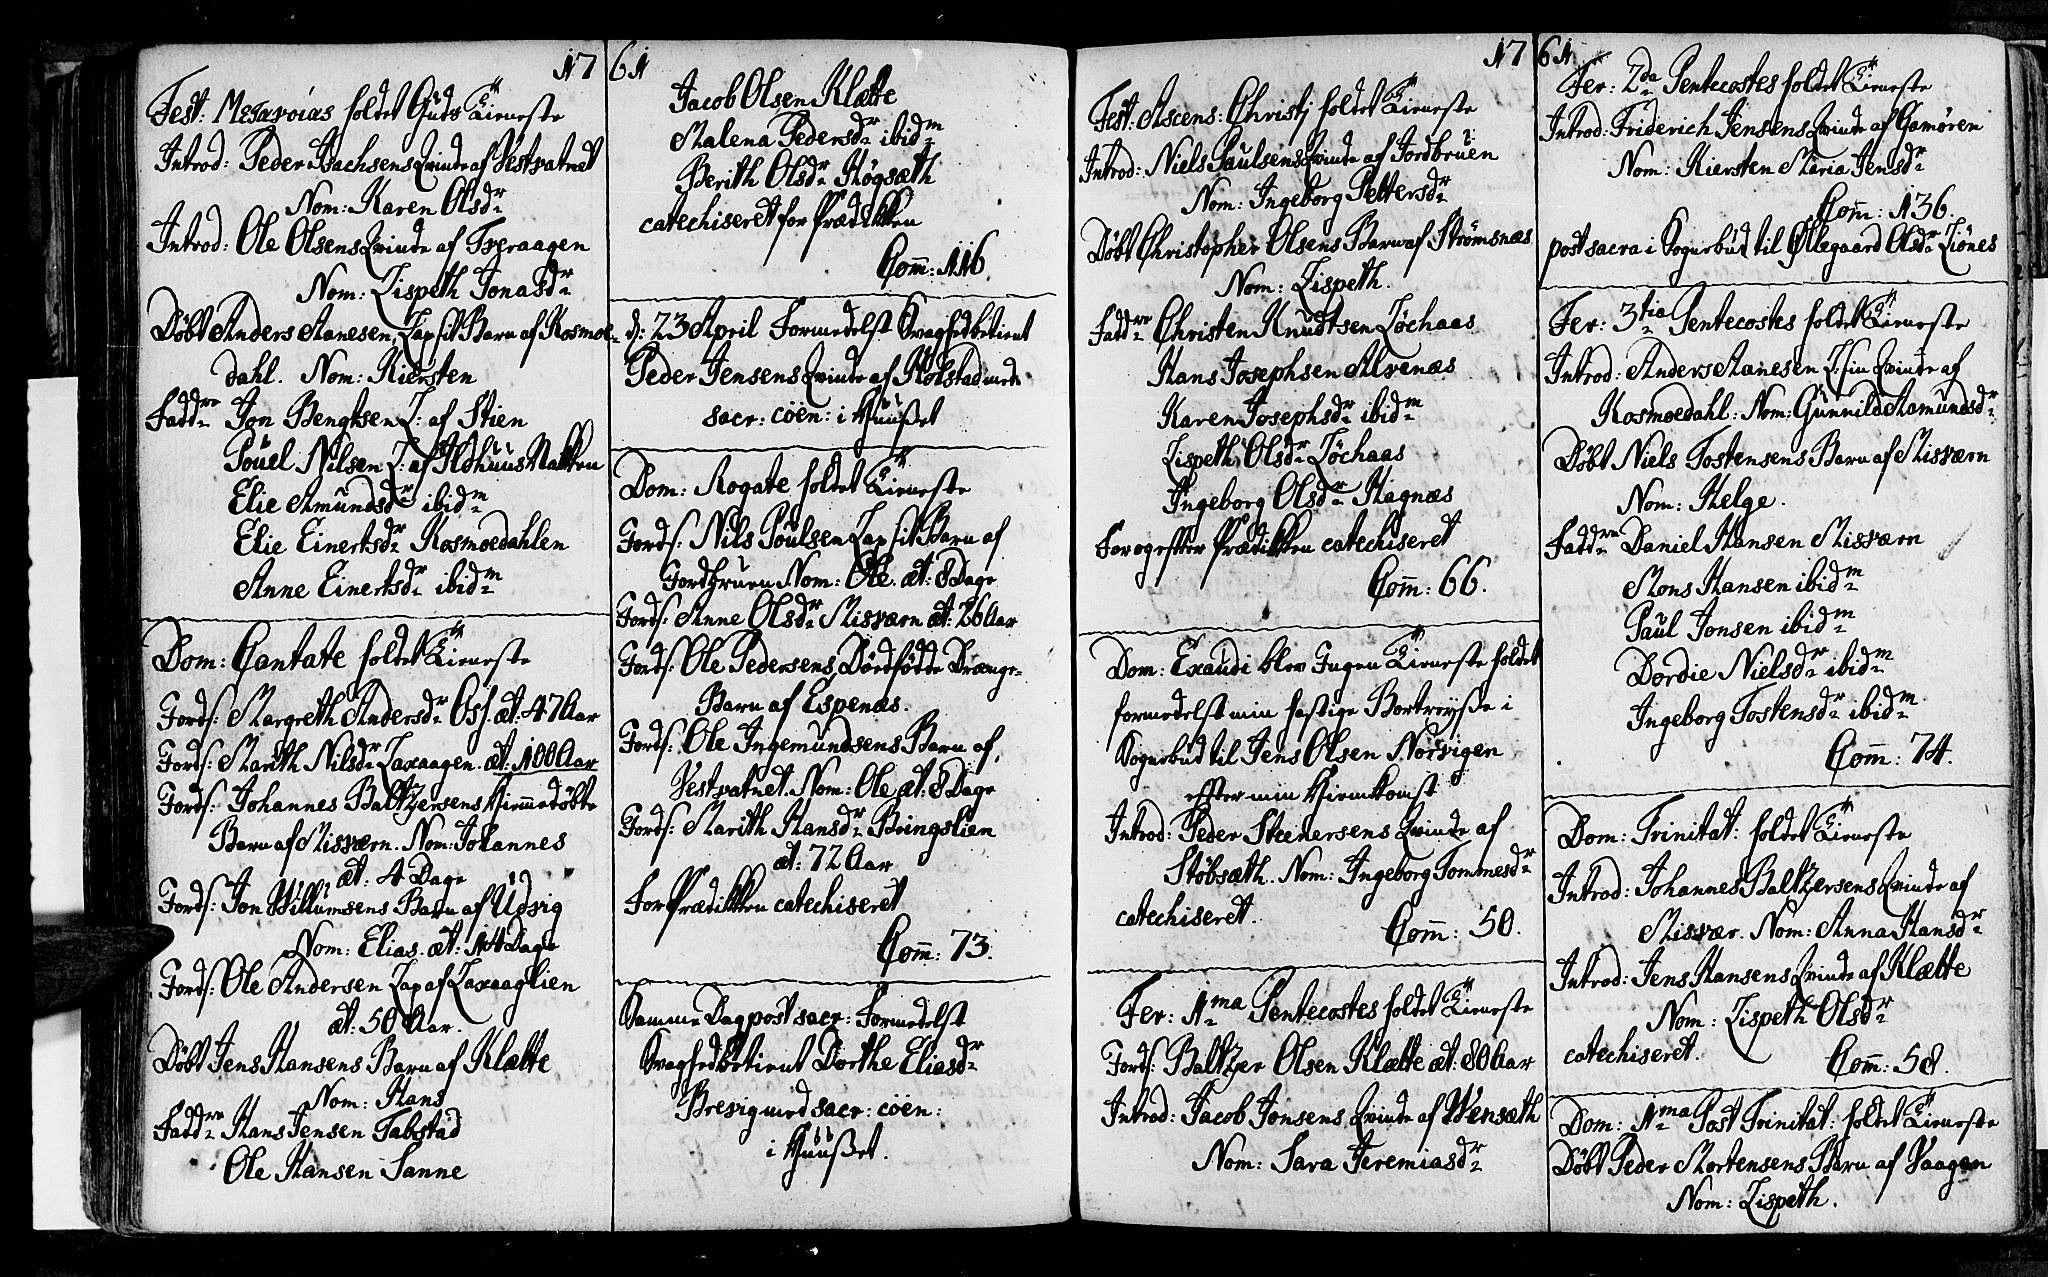 1761
Fest: Μετανοίας holdet Guds Tieneste
Introd: Peder Isachsens Qvinde af Vestvatnet
Nom: Karen Olsdr
Introd: Ole Olsens Qvinde af Tveraagen
Nom: Lispeth Jonasdr
Døbt Anders Aanesen, Lap sit Barn af Kosmoe-
dahl. Nom: Kiersten
Faddre Jon Bengtsen L: af Stien
Pouel Nilsen L: af Ildhuus Nakken
Elie Amundsdr ibidm
Elie Einertsdr Kosmoedahlen
Anne Einertsdr ibidm
Dom: Cantate holdet Tieneste
Jords: Margreth Andersdr Os. æt: 47 Aar
Jords: Marith Nilsdr Laxaagen. æt: 100 Aar
Jords: Johannes Baltzersens Hiemmedøbte
Barn af Misværn. Nom: Johannes
æt: 4 Dage
Jords: Jon Willumsens Barn af Udvig
Nom: Elias. æt: 14 Dage
Jords: Ole Andersen Lap af Laxaaglien
æt: 50 Aar.
Døbt Jens Hansens Barn af Klætte
Nom: Hans
Faddre Hans Jensen Tabstad
Ole Hansen Sanne
Jacob Olsen Klætte
Malena Pedersdr ibidm
Berith Olsdr Høgsæth
catechiseret for Prædikken
Com: 116.
d: 23 April Formedelst Svaghed betient
Peder Jensens Qvinde af Kolstad med
sacr: coen: i Huuset
Dom: Rogate holdet Tieneste
Jords: Nils Poulsen Lap sit Barn af
Jordbruen Nom: Ole. æt: 8 Dage
Jords: Anne Olsdr Misværn æt: 26 Aar
Jords: Ole Pedersens Dødfødde Drænge-
Barn af Espenæs.
Jords: Ole Ingemundsens Barn af
Vestvatnet. Nom: Ole æt: 8 Dage
Jords: Marith Hansdr Bringslien
æt: 72 Aar
For Prædikken catechiseret
Com: 73.
Samme Dag post sacr: Formedelst
Svaghed betient Dorthe Eliasdr
Brevig med sacr: coen:
i Huuset.
1761
Fest: Ascens: Christj holdet Tieneste
Introd: Niels Paulsens Qvinde af Jordbruen
Nom: Ingeborg Pettersdr
Døbt Christopher Olsens Barn af Strømsnæs
Nom: Lispeth.
Faddre Christen Knudtsen Løchaas
Hans Josephsen Alvenæs
Karen Josephsdr ibidm
Lispeth Olsdr Løchaas
Ingeborg Olsdr Hagnæs
For og efter Prædikken catechiseret
Com: 66.
Dom: Exaudi blev Ingen Tieneste holdet
formedelst min hastige Bortreyse i
Sognebud til Jens Olsen Norvigen
efter min Hiemkomst
Introd: Peder Steenersens Qvinde af
Støbsæth. Nom: Ingeborg Tommesdr
catechiseret. Com: 50.
Fer: 1ma Pentecostes holdet Tieneste
Jords: Baltzer Olsen Klætte æt: 80 Aar
Introd: Jacob Jonsens Qvinde af Wensæth
Nom: Sara Jeremiasdr
Fer: 2da Pentecostes holdet Tieneste
Introd: Friderich Jensens Qvinde af Gamøren
Nom: Kiersten Maria Jensdr
Com: 136.
post sacra i Sognebud til Øllegaard Olsdr Liønes
Fer: 3tia Pentecostes holdet Tieneste
Introd: Anders Aanesen L: sin Qvinde af
Kosmoedahl: Nom: Gunnild Aamundsdr
Døbt Niels Tostensens Barn af Misværn
Nom: Helge.
Faddre Daniel Hansen Misværn
Mons Hansen ibidm
Paul Jonsen ibidm
Dordie Nielsdr ibidm
Ingeborg Tostensdr ibidm
Com: 74.
Dom: Trinitat: holdet Tieneste
Introd: Johannes Baltzersens Qvinde af
Misvær. Nom: Anna Hansdr
Introd: Jens Hansens Qvinde af Klætte
Nom: Lispeth Olsdr
catechiseret. Com: 58.
Dom: 1ma Post Trinitat: holdet Tieneste
Døbt Peder Mortensens Barn af Vaagen
Nom: Lispeth.